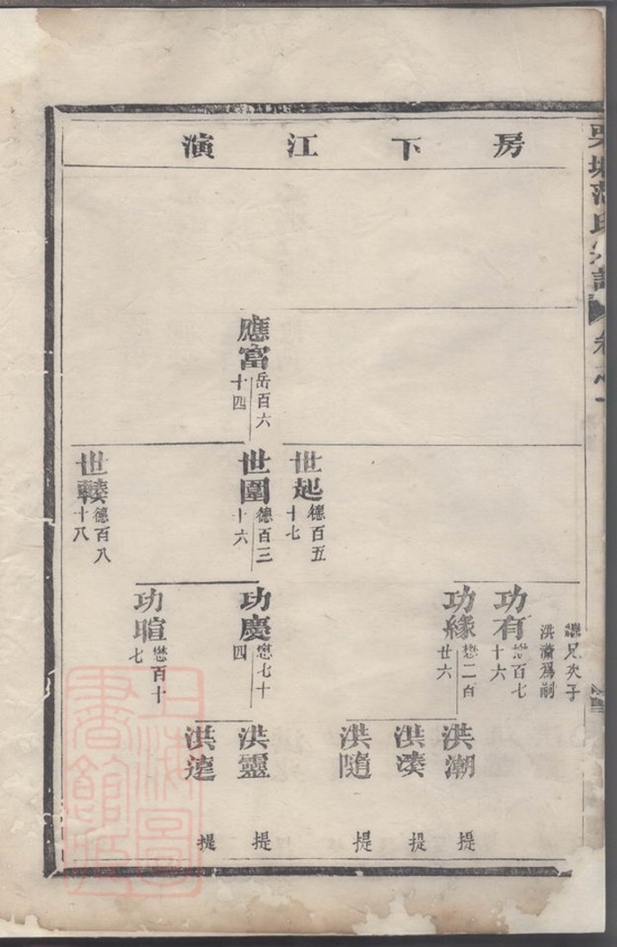 房下江演
應富
岳百六
十四
世起
德百五
十七
世圍
德百三
十六
世轃
德百八
十八
兄次子
洪瀟爲嗣
功有
懋百七
十六
功緣
懋二百
廿六
功慶
懋七十
四
功暄
懋百十
七
洪潮
提
洪湊
提
洪隨
提
洪靈
提
洪達
提
上海圖
書館藏